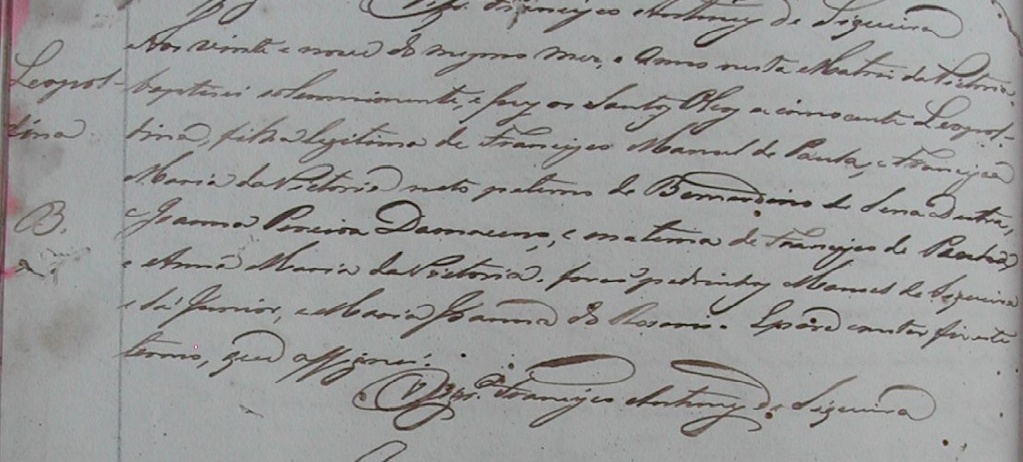 Vigr. Francisco Antonio de Siqueira
Aos vinte e nove do mesmo mez, e Anno nesta Matriz da Victoria
Leopol- baptizei solemnemente, e puz os Santos Oleos a innocente Leopol-
dina dina, filha legitima de Francisco Manoel de Paula, e Francisca
Maria da Victoria neta paterna de Bernardino de Sena Dutra,
B. e Joanna Pereira Damaceno, e materna de Francisco de Paula,
e Anna Maria da Victoria. forão padrinhos Manoel de Siqueira
e Sá Junior, e Maria Joanna do Rosario. E para constar fiz este
termo, que assignei.
O Vigr. Francisco Antonio de Siqueira